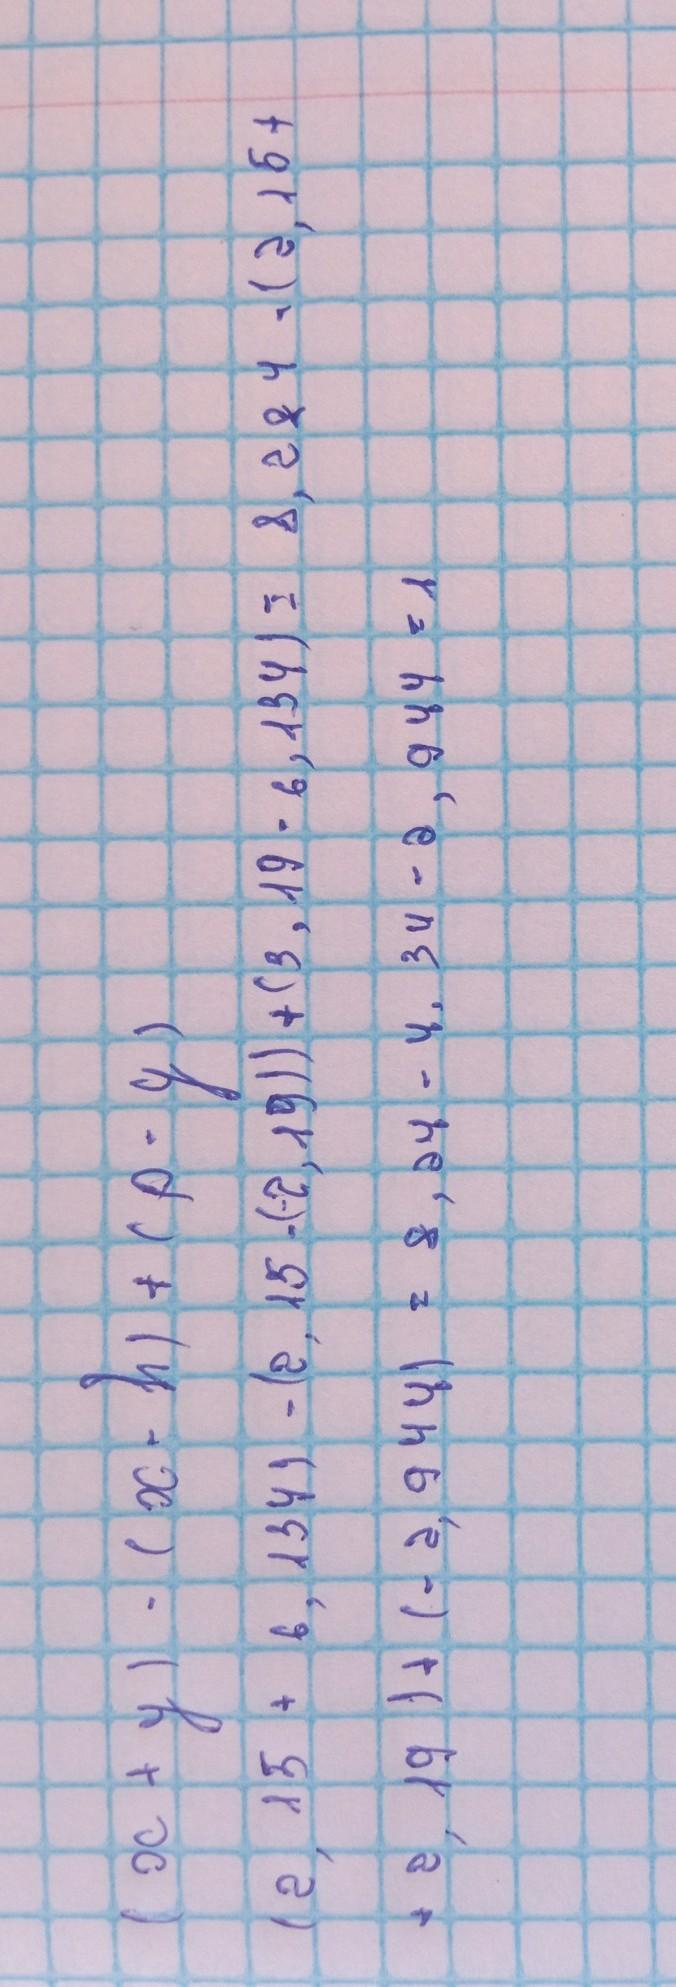 (x + y) - (x - y) + (p - y)
(2,15 + 6,134) - (2,15 - (-2,19)) + (3,19 - 6,134) = 8,284 - (2,15 +
+ 2,19) + (-2,944) = 8,24 - 4,34 - 2,944 = 1